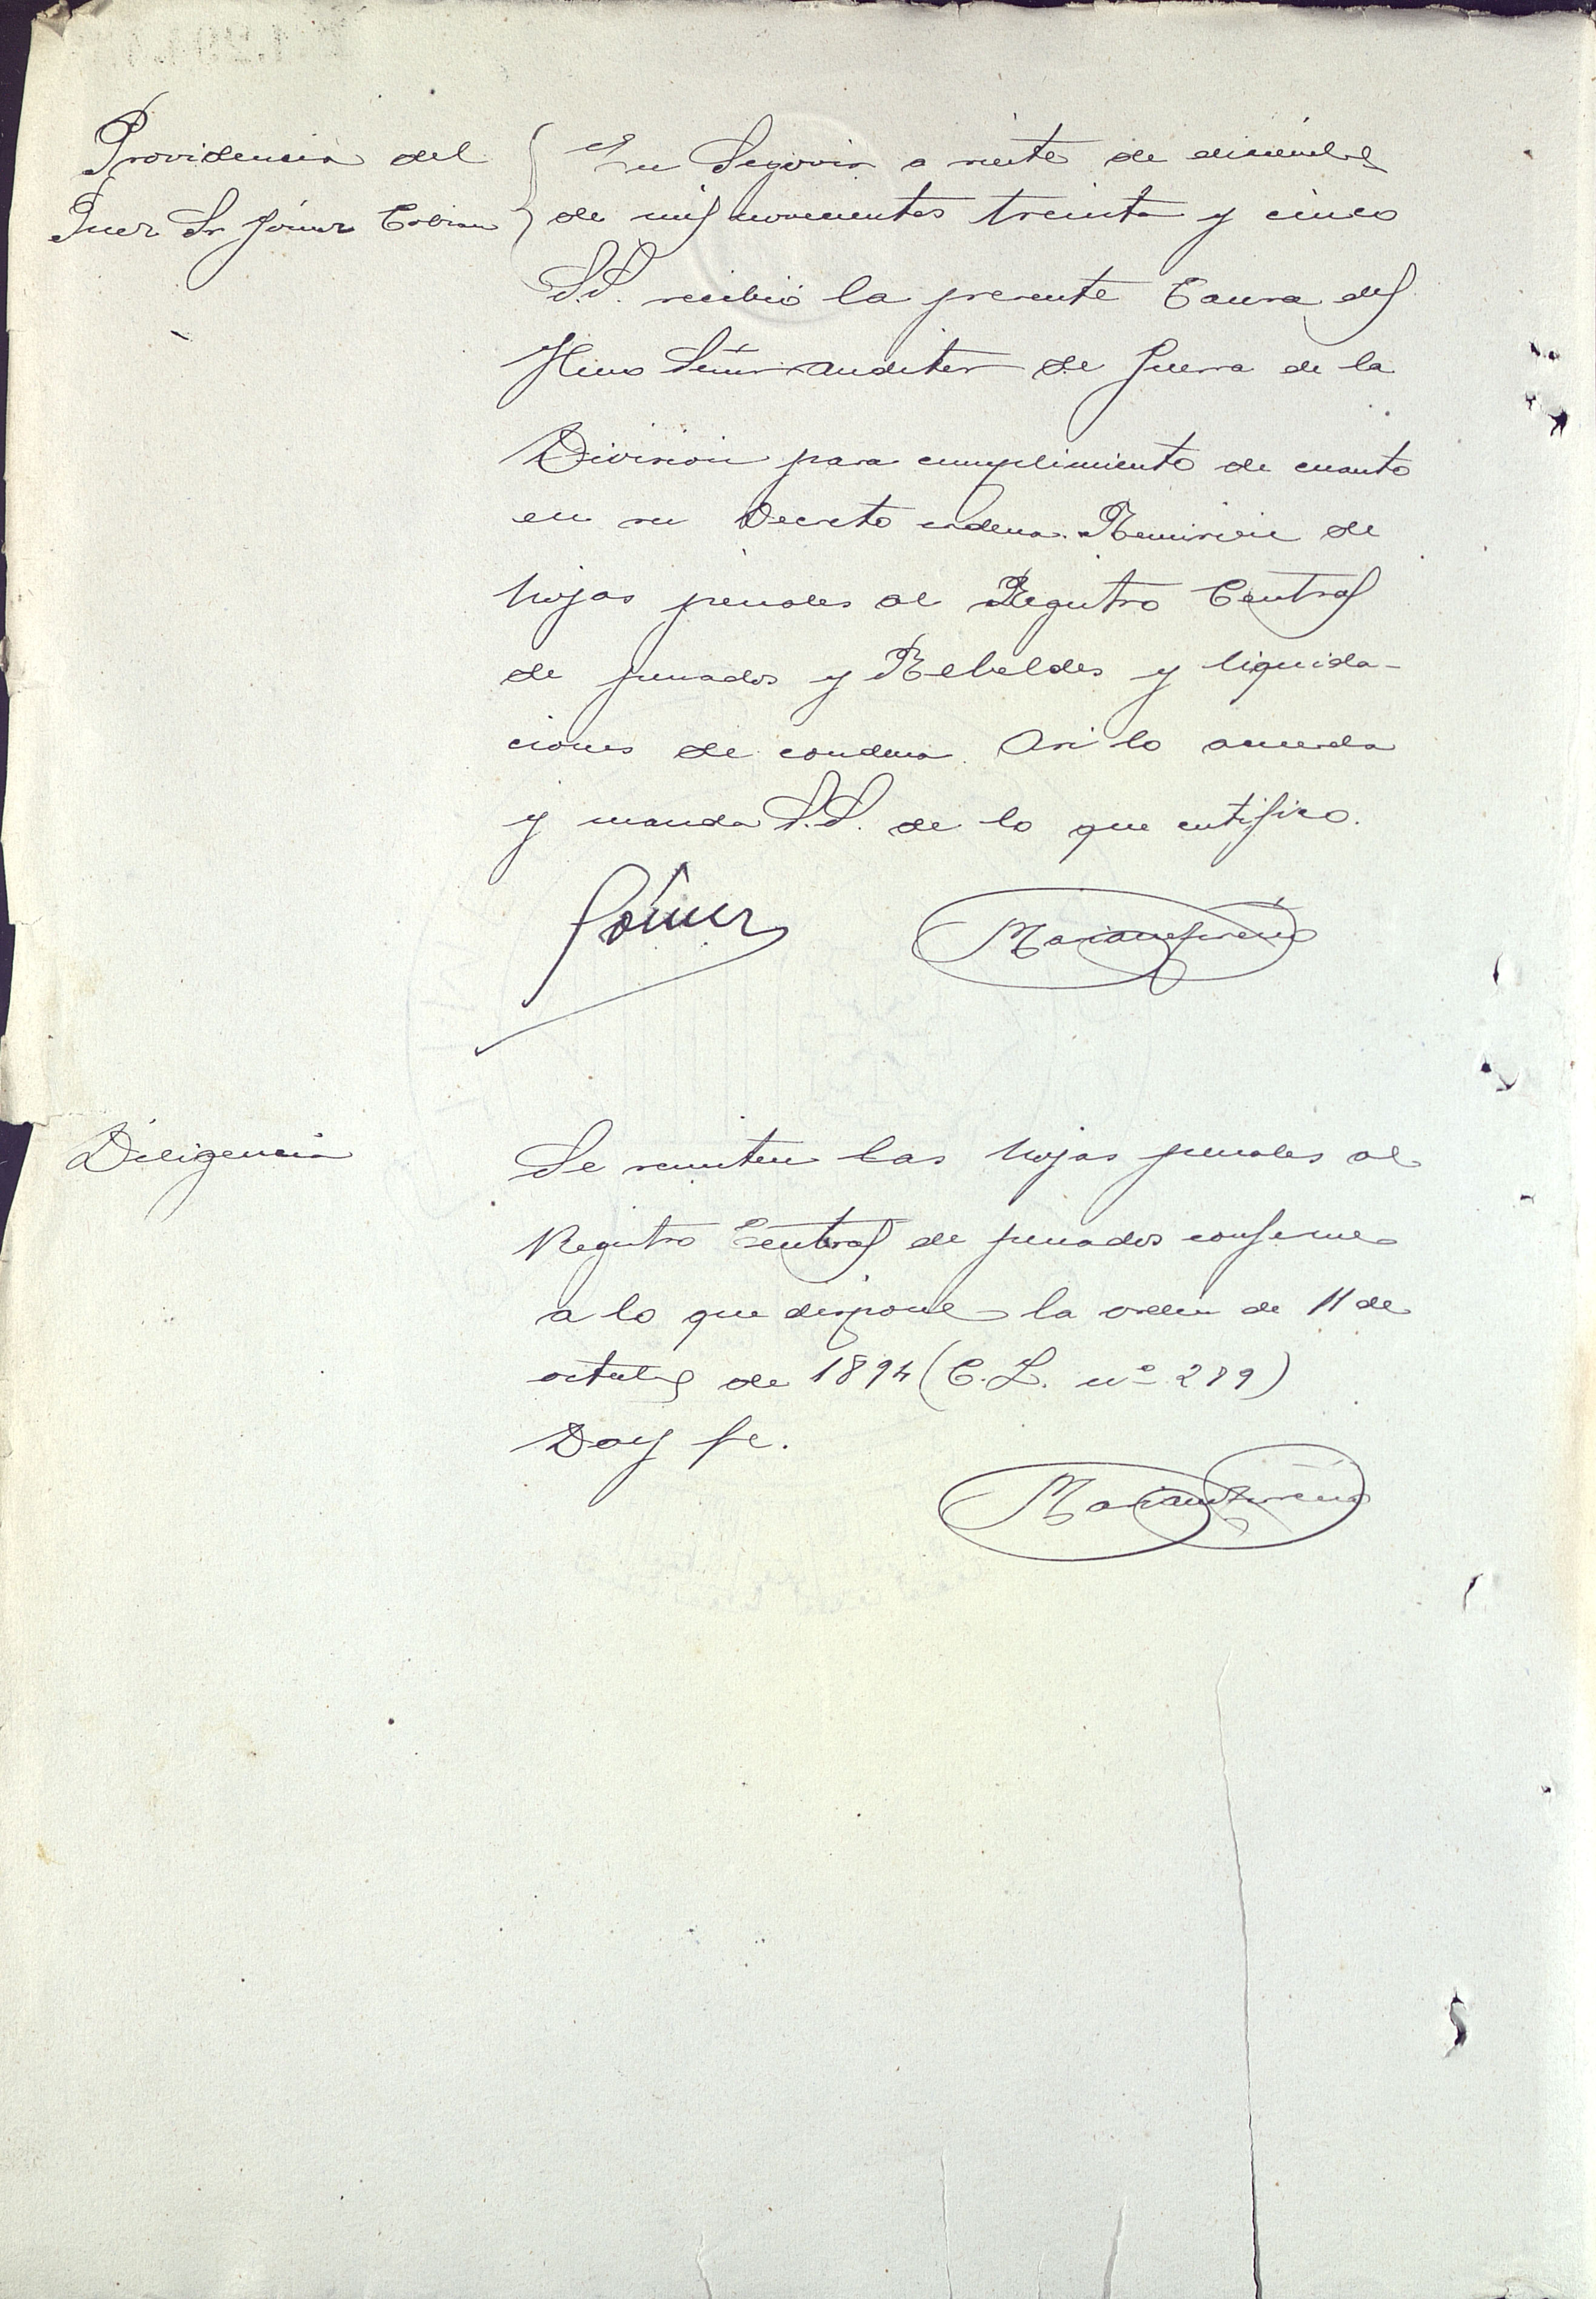 Providencia del
Juez Sr Gómez Cobian
En Segovia a siete de diciembre
de mil novecientos treinta y cinco
S.S. recibió la presente Causa del
Iltmo Señor Auditor de Guerra de la
Division para cumplimiento de cuanto
en su Decreto ordena. Remision de
hojas penales al Registro Central
de penados y Rebeldes y liquida-
ciones de condena. Asi lo acuerda
y manda S.S. de lo que certifico.
Gómez
Diligencia
Se remiten las hojas penales al
Registro Central de penados conforme
a lo que dispone la orden de 11 de
octubre de 1894 (C.L. nº 289)
Doy fe.